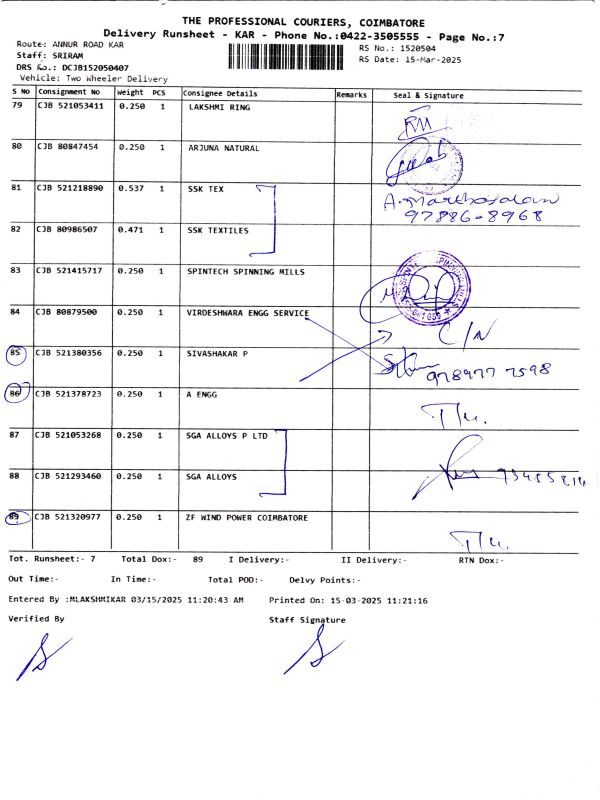 THE PROFESSIONAL COURIERS, COIMBATORE
Delivery Runsheet - KAR - Phone No.:0422-3505555 - Page No.:7
Route: ANNUR ROAD KAR
RS No.: 1520504
Staff: SRIRAM
RS Date: 15-Mar-2025
DRS No.: DCJB152050407
Vehicle: Two Wheeler Delivery
S No Consignment No Weight PCS Consignee Details Remarks Seal & Signature
79 CJB 521053411 0.250 1 LAKSHMI RING
80 CJB 80847454 0.250 1 ARJUNA NATURAL
81 CJB 521218890 0.537 1 SSK TEX
97886-8968
82 CJB 80986507 0.471 1 SSK TEXTILES
83 CJB 521415717 0.250 1 SPINTECH SPINNING MILLS
84 CJB 80879500 0.250 1 VIRDESHWARA ENGG SERVICE
C/N
85 CJB 521380356 0.250 1 SIVASHAKAR P
978977 7598
86 CJB 521378723 0.250 1 A ENGG
87 CJB 521053268 0.250 1 SGA ALLOYS P LTD
88 CJB 521293460 0.250 1 SGA ALLOYS
89 CJB 521320977 0.250 1 ZF WIND POWER COIMBATORE
Tot. Runsheet:- 7 Total Dox:- 89 I Delivery:- II Delivery:- RTN Dox:-
Out Time:- In Time:- Total POD:- Delvy Points:-
Entered By :MLAKSHMIKAR 03/15/2025 11:20:43 AM Printed On: 15-03-2025 11:21:16
Verified By Staff Signature